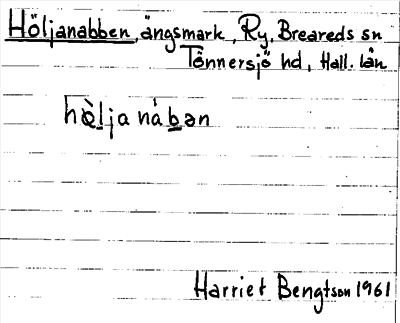 Höljanabben, ängsmark, Ry, Breareds sn
Tönnersjö hd, Hall. län
hø̀ljanàbən
Harriet Bengtson 1961